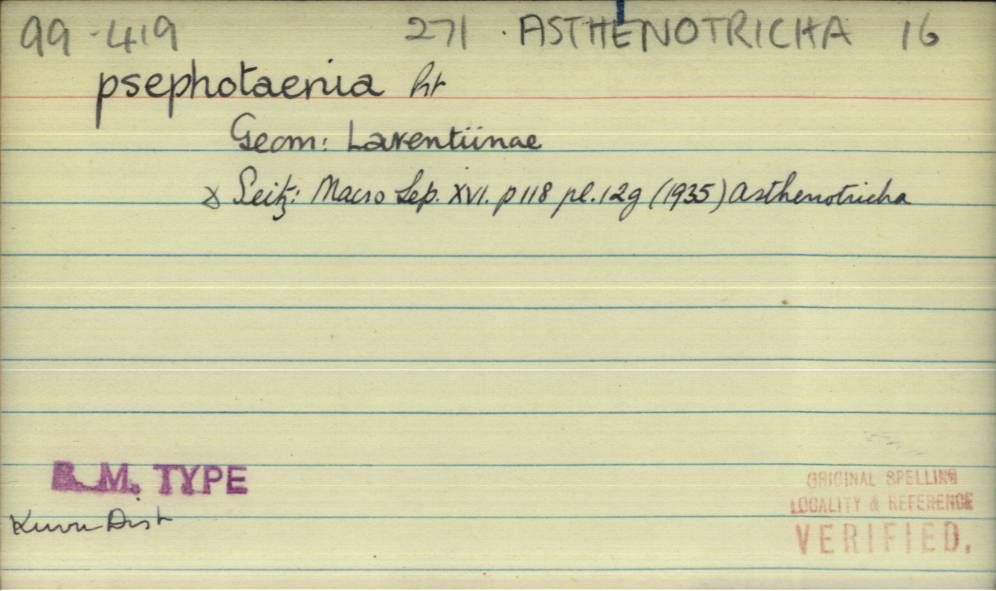 99-419 271 . ASTHENOTRICHA 16
psephotaenia Prt
Geom: Larentiinae
x Seitz: Macro Lep. XVI. p 118 pl. 12g (1935) Asthenotricha
B.M. TYPE
Kuvu Dist
ORIGINAL SPELLING
LOCALITY & REFERENCE
VERIFIED.